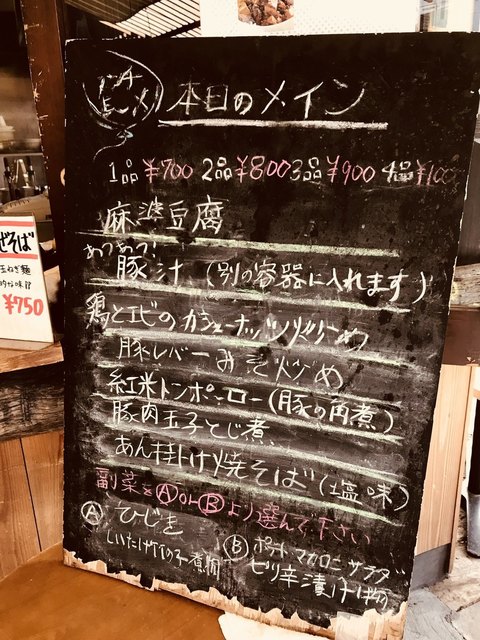 本日のメイン
1品¥700 2品¥800 3品¥900 4品¥100
麻婆豆腐
あつあつ!
豚汁(別の容器に入れます)
鶏とエビのカシューナッツ炒め
豚レバーみそ炒め
紅米トンポーロー(豚の角煮)
豚肉玉子とじ煮
あん掛け焼そば(塩味)
副菜をⒶorⒷより選んで下さい
Ⓐひじき
しいたけ竹の子煮
Ⓑポテトマカロニサラダ
ピリ辛漬け
ぜそば
玉ねぎ麺
¥750